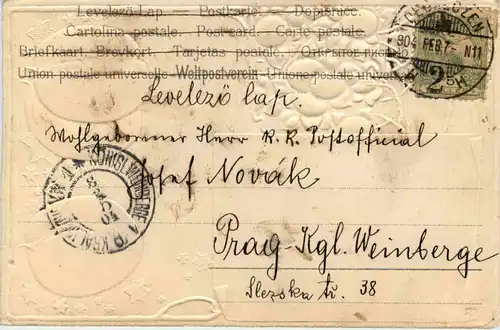 Levelező Lap. — Postkarte — Dopisnice.
Cartolina postale. Post card. Carte postale.
Briefkaart. Brevkort. Tarjetas postale.
Union postale universelle Weltpostverein Unione postale univers
Levelező lap.
Wohlgeborener Herr K. K. Postofficial
Josef Novák
Prag-Kgl. Weinberge
Slezska tř. 38
904 FEB. 7 N11
2